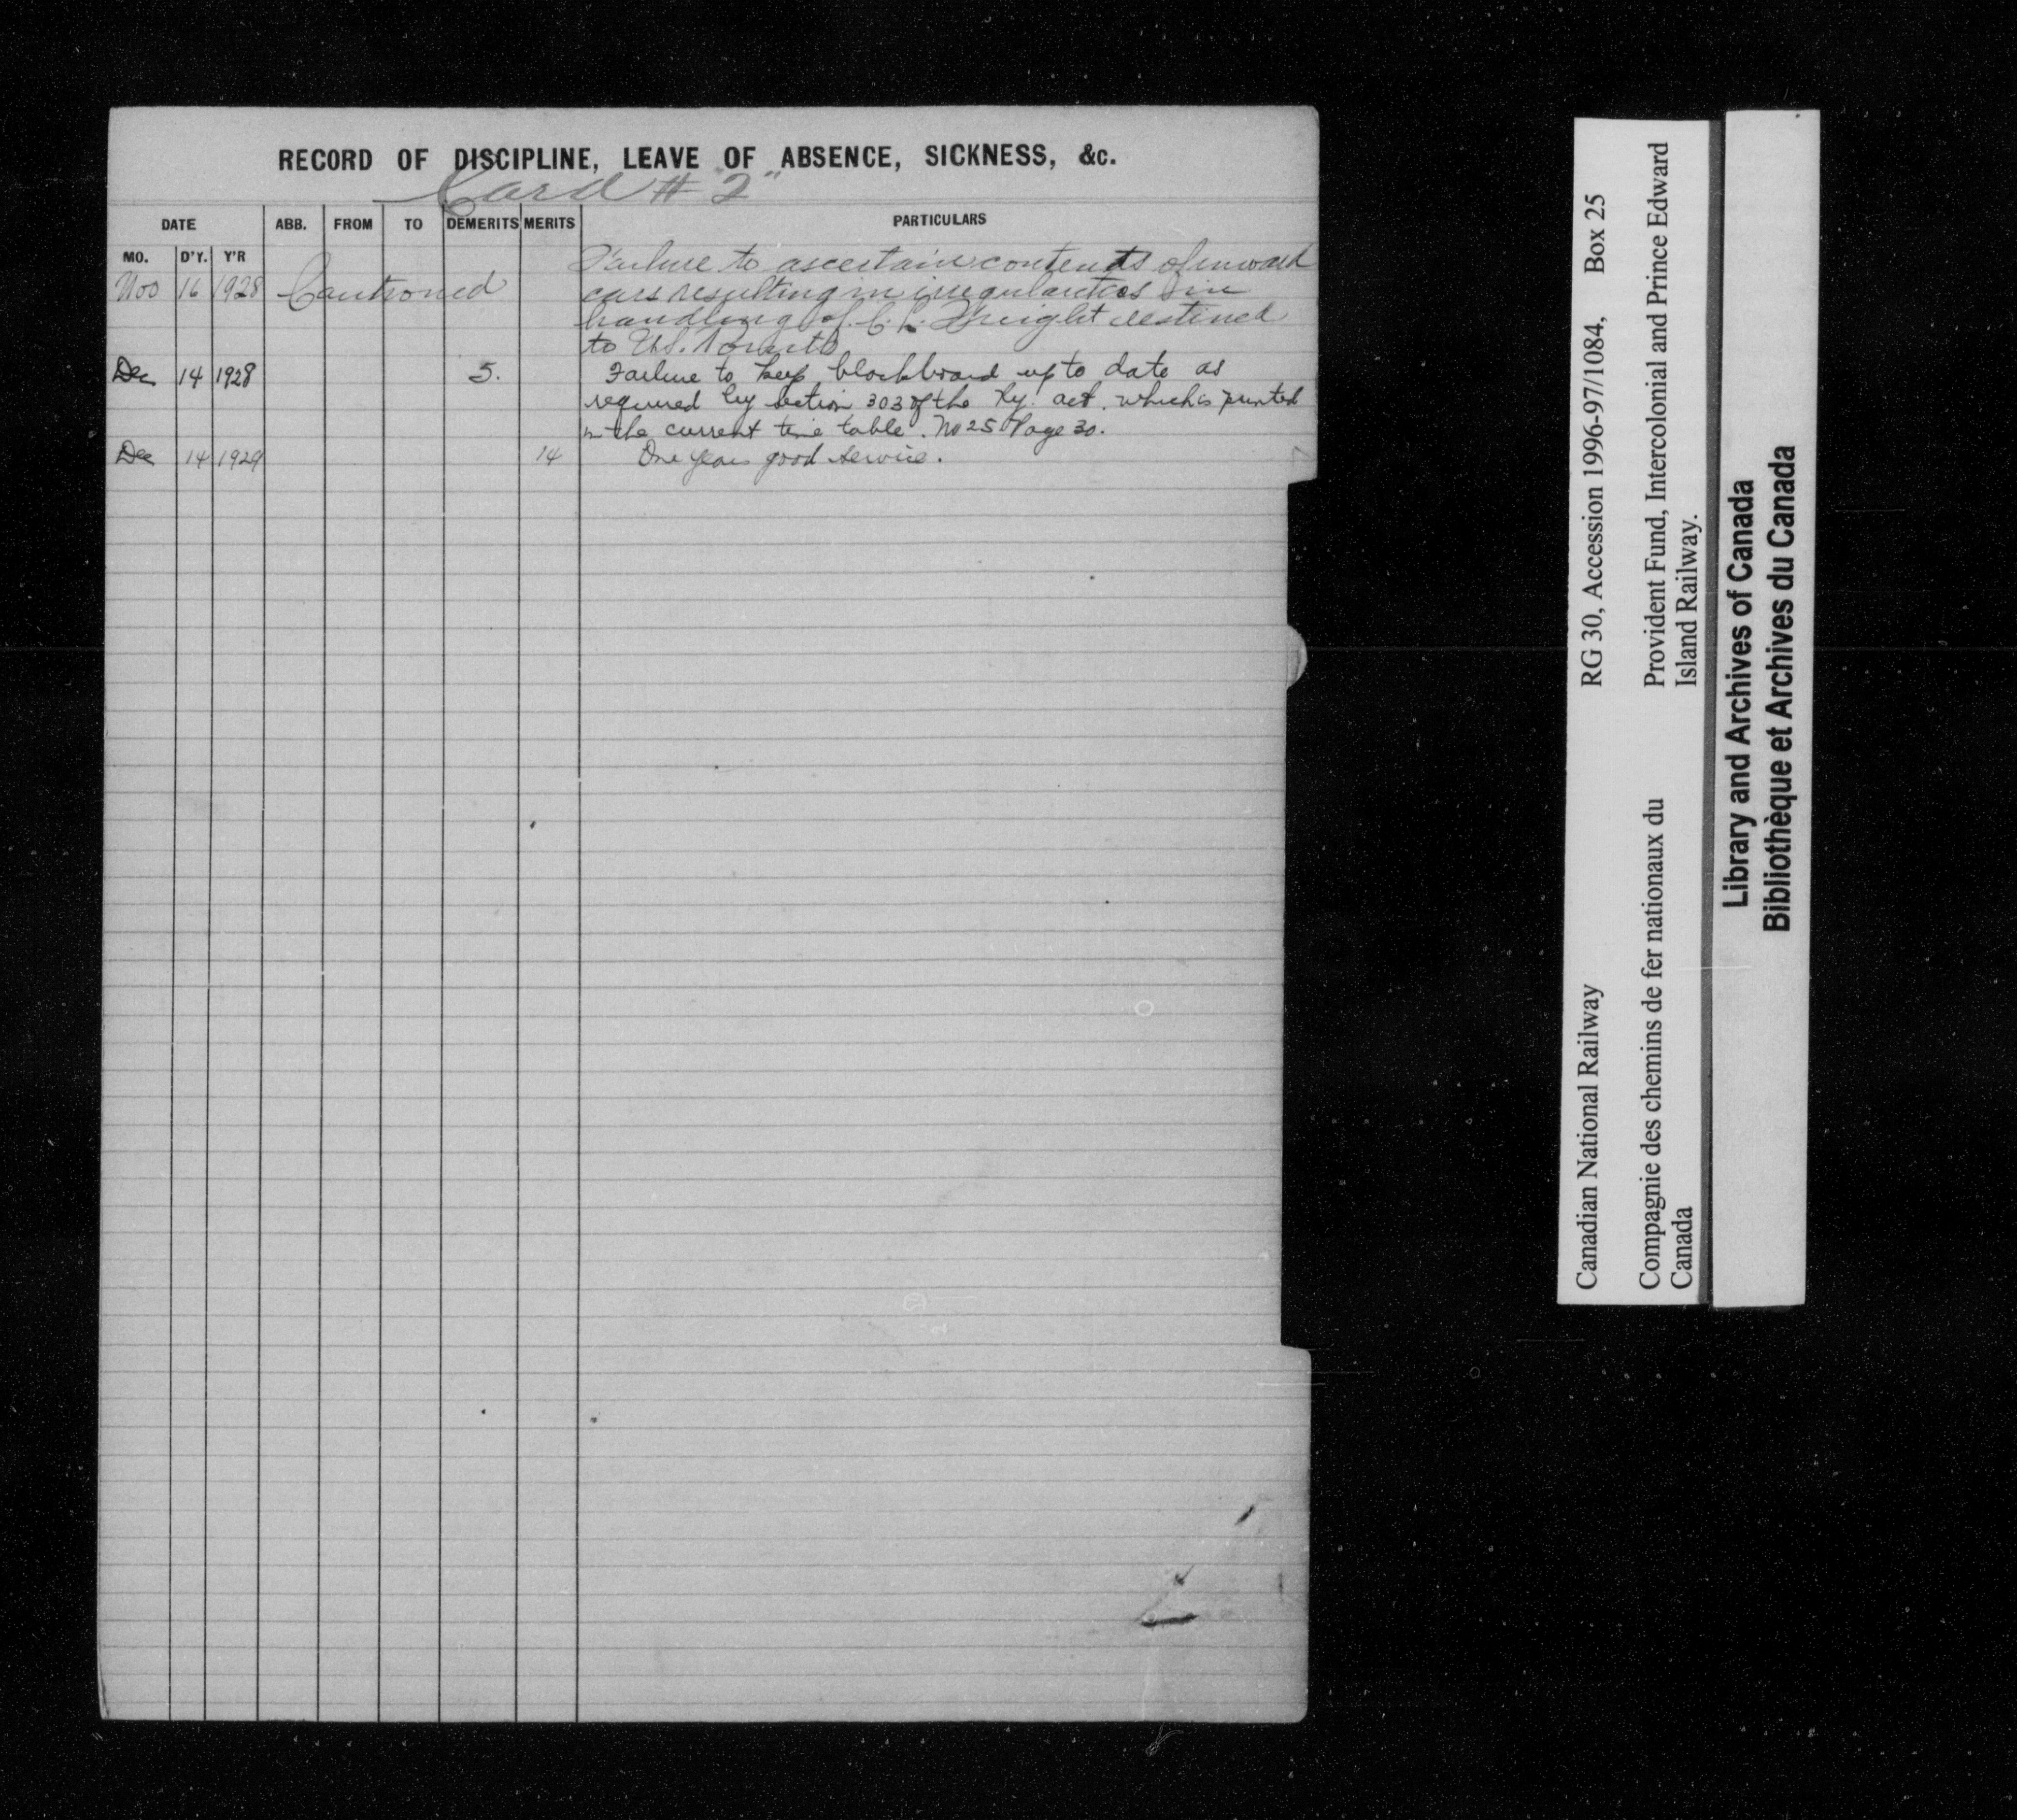 RECORD OF DISCIPLINE, LEAVE OF ABSENCE, SICKNESS, &c.
Card # "2"
DATE ABB. FROM TO DEMERITS MERITS PARTICULARS
MO. D'Y. Y'R
Failure to ascertain contents of inward
Nov 16 1928 Cautioned cars resulting in irregularities in
handling of L. C. L. Freight destined
to U.S. Points
Dec 14 1928 5. Failure to keep blackboard up to date as
required by section 303 of the Ry. act. which is printed
in the current time table. No 25 Page 30.
Dec 14 1929 14 One years good service.
Canadian National Railway RG 30, Accession 1996-97/1084, Box 25
Compagnie des chemins de fer nationaux du Provident Fund, Intercolonial and Prince Edward
Canada Island Railway.
Library and Archives of Canada
Bibliothèque et Archives du Canada